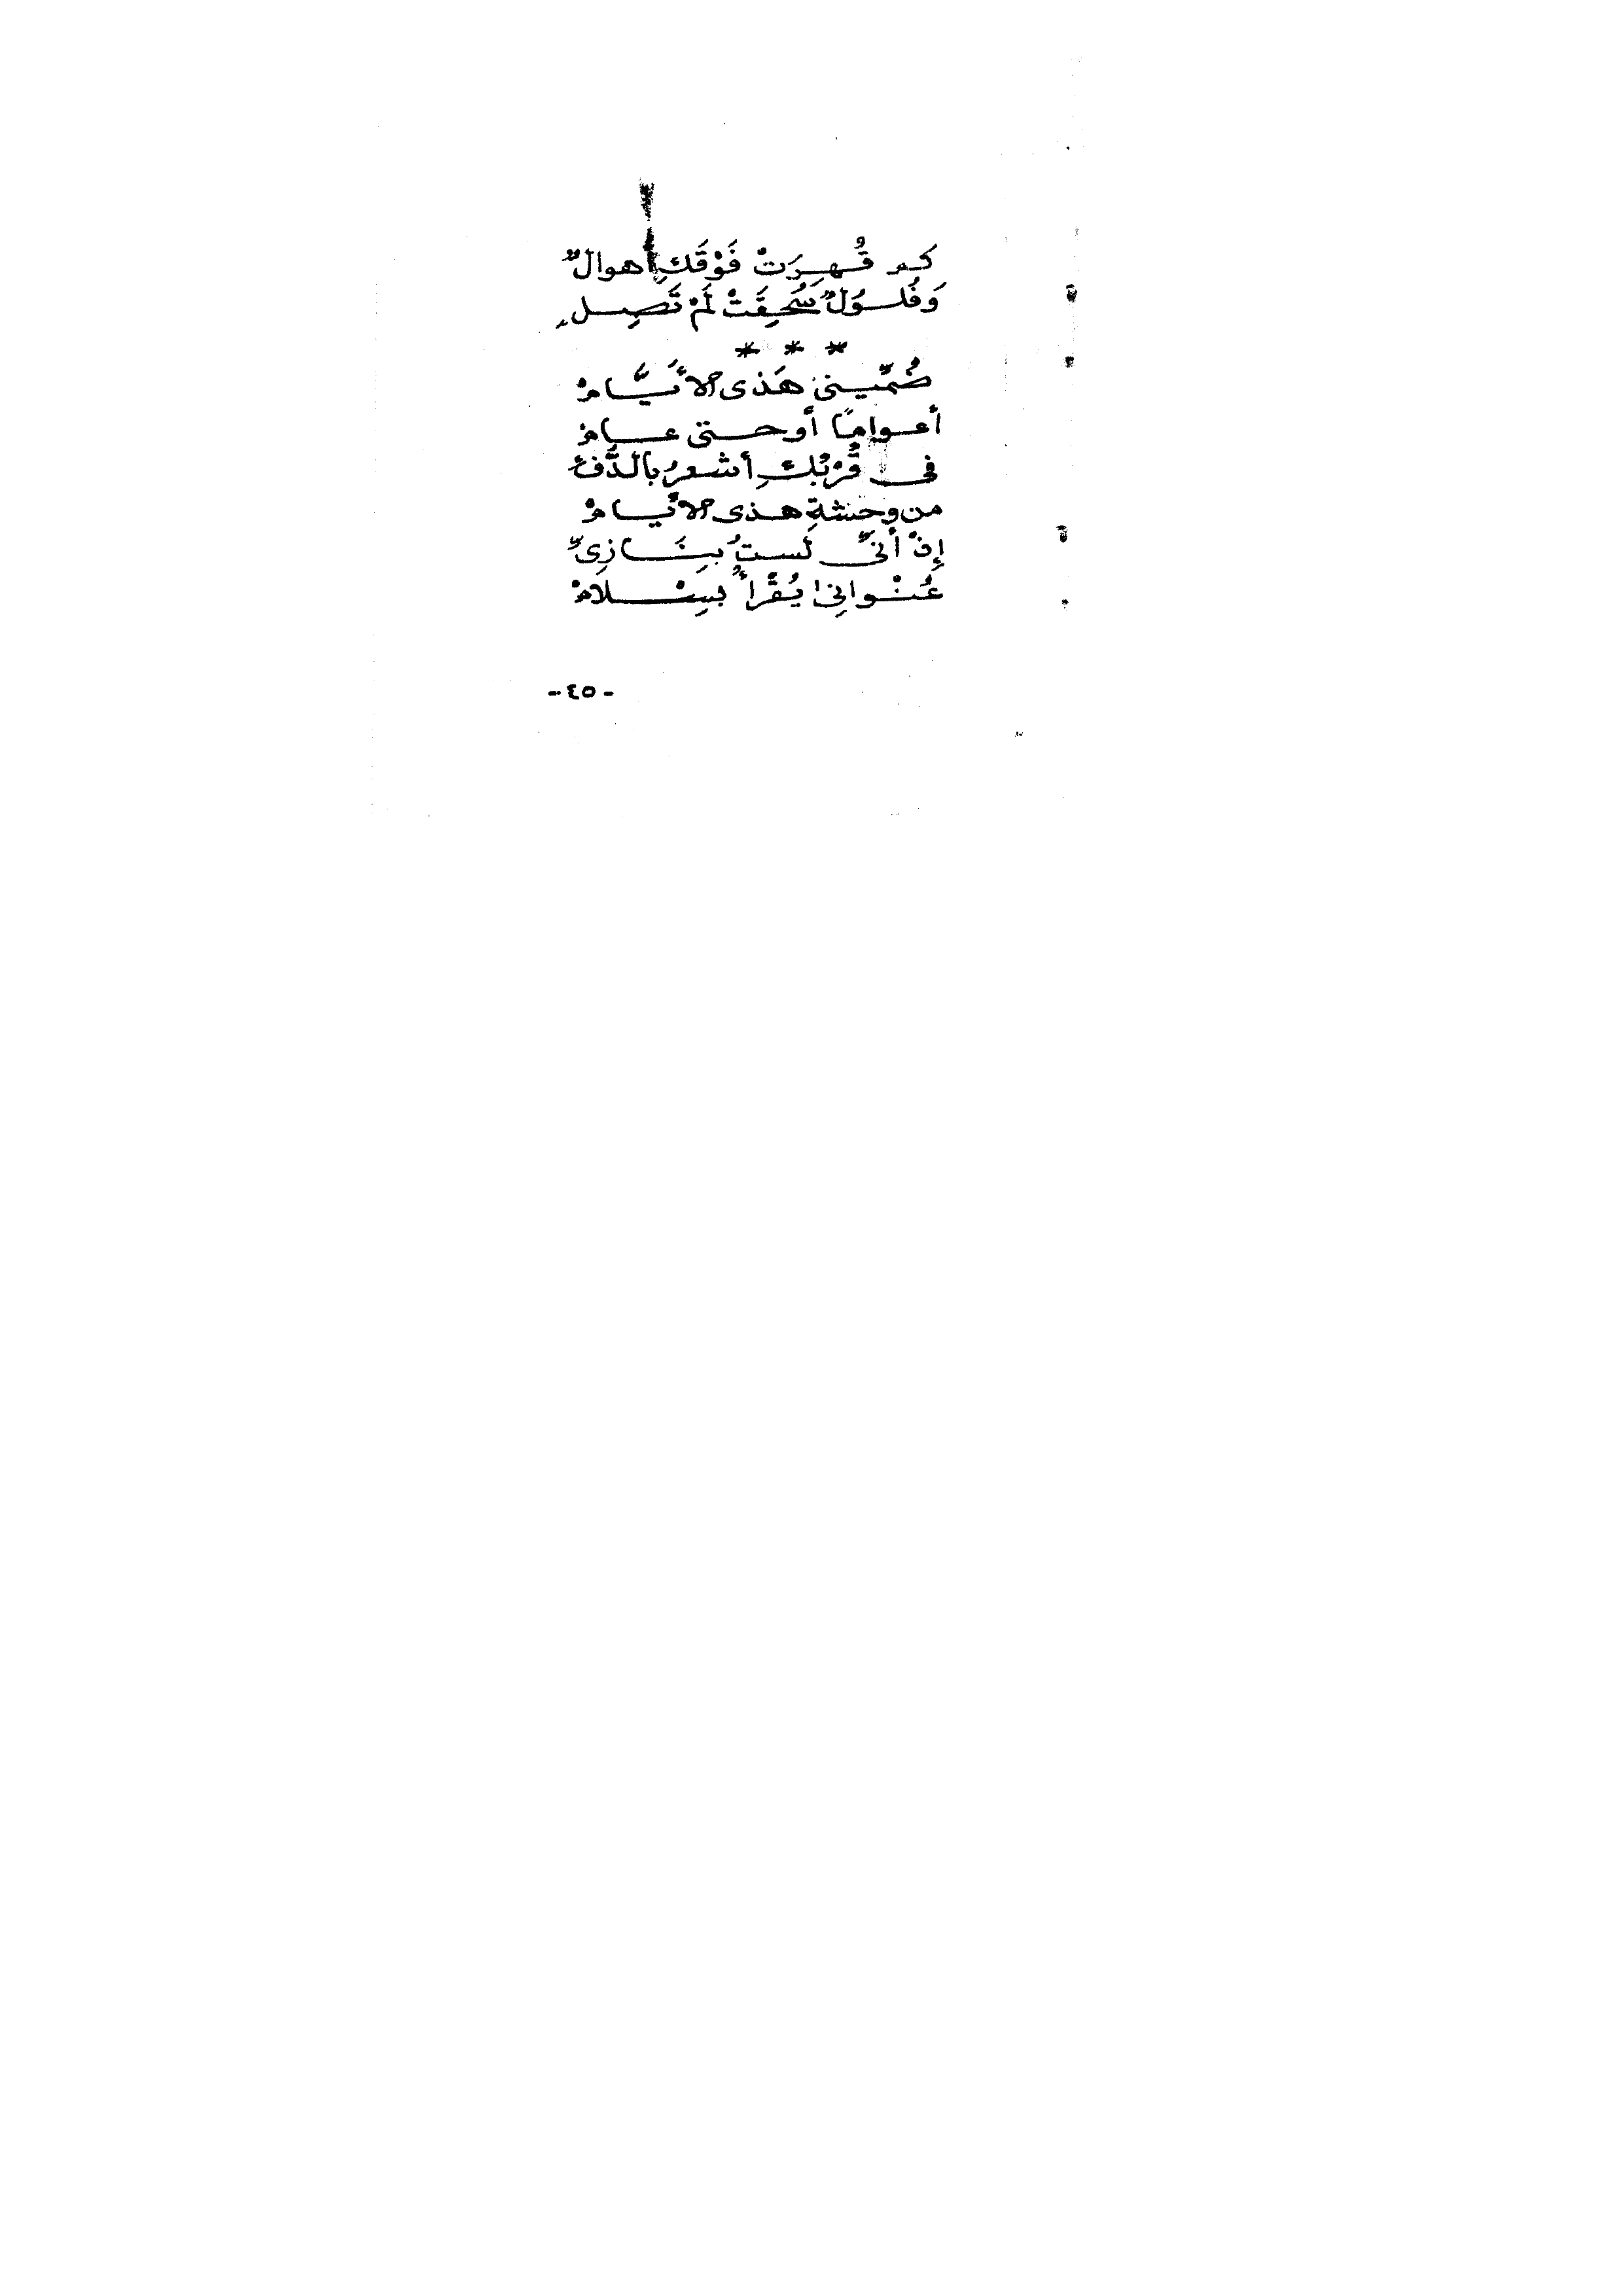 كم قُهِرَتْ فَوْقَكِ أهوالٌ
وَفُلُولٌ سُحِقَتْ لَمْ تَصِلِ
* * *
ضُمِّينى هَذى الأَيَّامْ
أعوامًا أو حتى عامْ
فى قُرْبِكِ أشعرُ بالدِّفْءِ
من وحشةِ هذى الأيامْ
إنْ أنِّى لَستُ بِنَازِىٍّ
عُنْوانِى يُقْرأُ بِسَلَامْ
-٤٥-